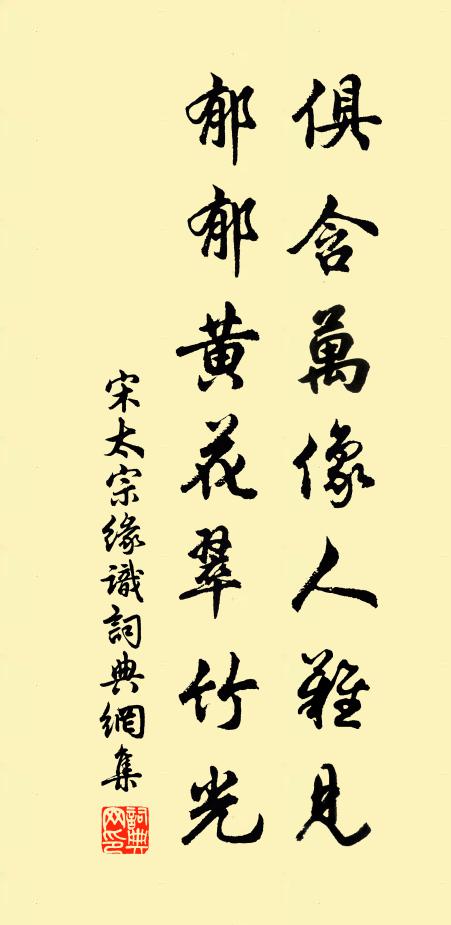 俱含萬像人難見
郁郁黄花翠竹光
宋太宗緣識詞典網集
詞典网印